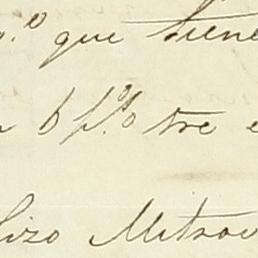 º que tiene
6 p% tre
hizo Mitrov